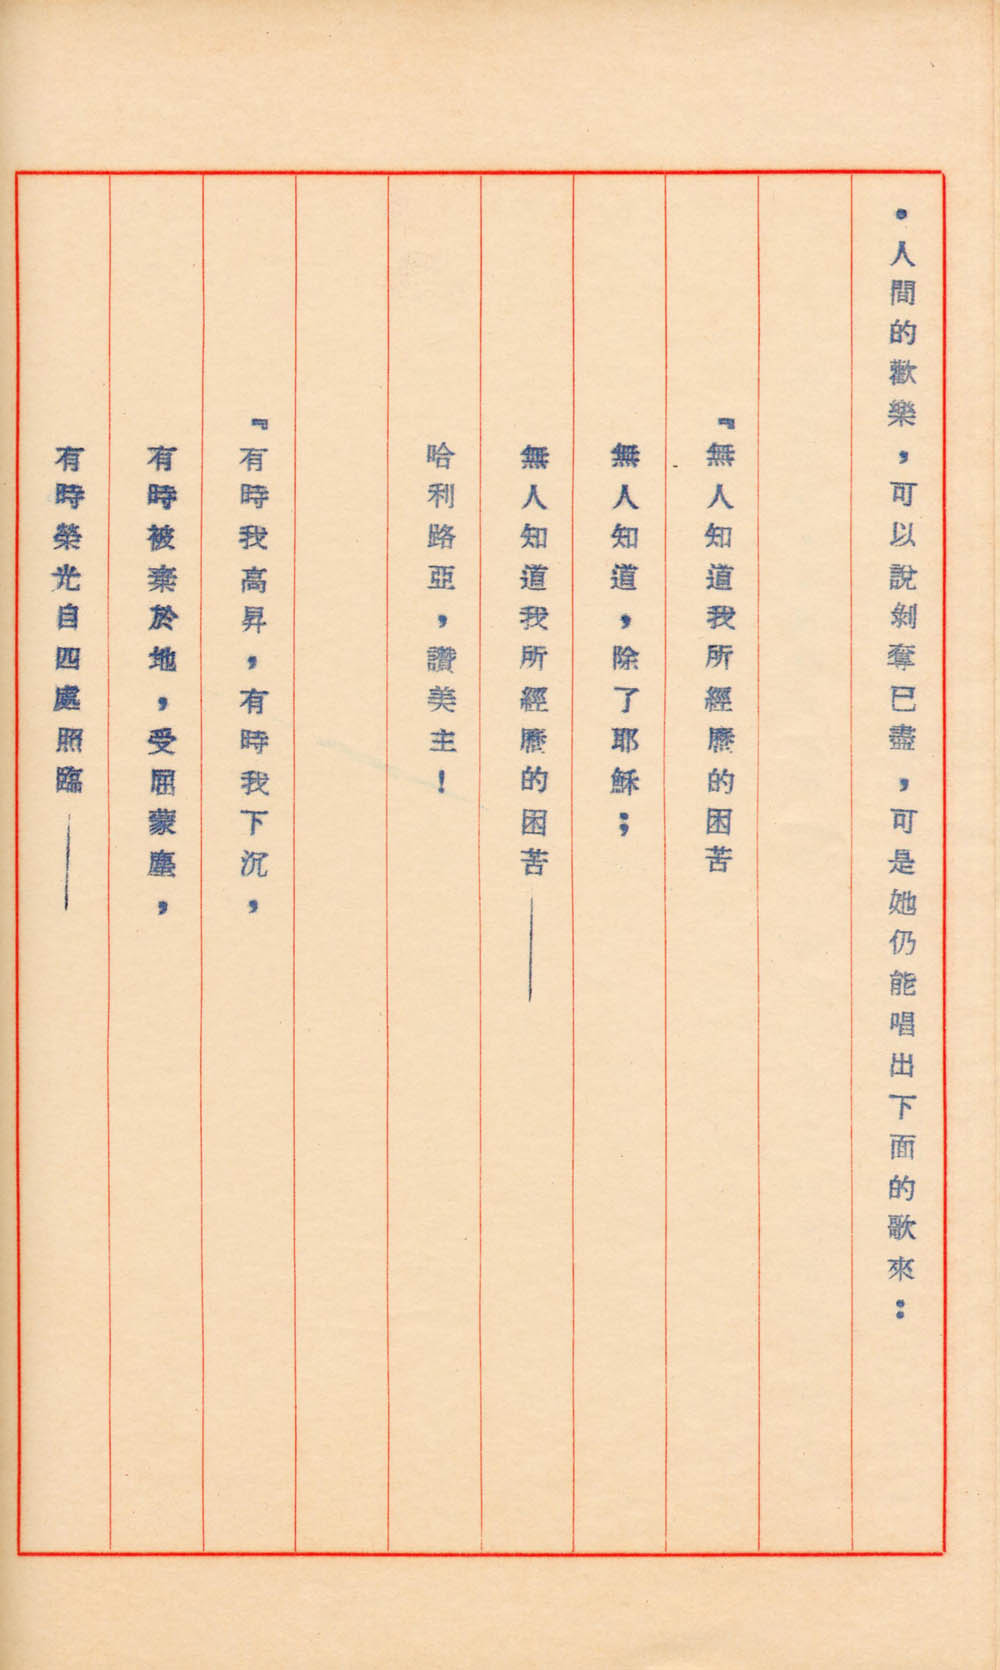 ・人間的歡樂，可以說剝奪已盡，可是她仍能唱出下面的歌來：
『無人知道我所經歷的困苦
無人知道，除了耶穌；
無人知道我所經歷的困苦——
哈利路亞，讚美主！
『有時我高昇，有時我下沉，
有時被棄於地，受屈蒙塵，
有時榮光自四處照臨——